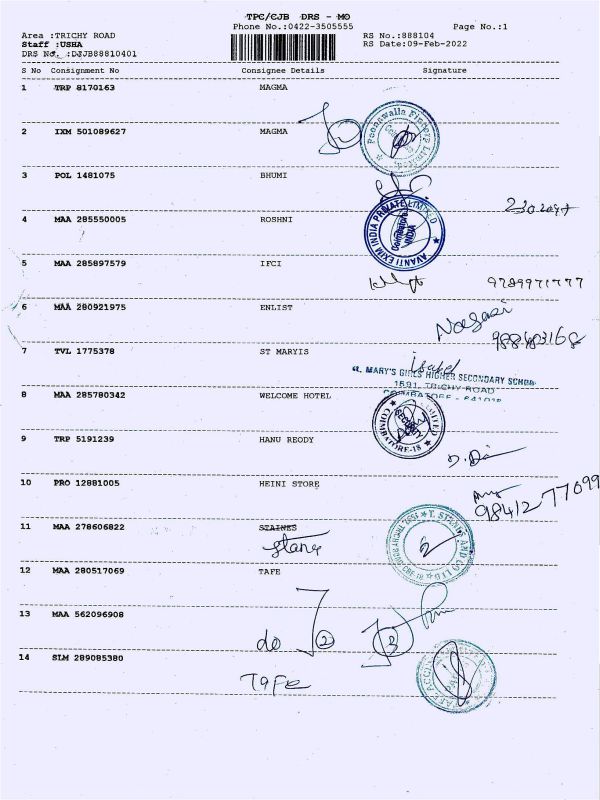 TPC/CJB DRS - MO
Phone No.:0422-3505555 Page No.:1
Area :TRICHY ROAD RS No.:888104
Staff :USHA RS Date:09-Feb-2022
DRS No. :DJJB88810401
S No Consignment No Consignee Details Signature
1 TRP 8170163 MAGMA
2 IXM 501089627 MAGMA
Poonawalla Fincorp Limited
3 POL 1481075 BHUMI
4 MAA 285550005 ROSHNI
AVANTI EXIM INDIA PRIVATE LIMITED
Coimbatore
INDIA
5 MAA 285897579 IFCI
9789971777
6 MAA 280921975 ENLIST
7 TVL 1775378 ST MARYIS
ST. MARY'S GIRLS HIGHER SECONDARY SCHOOL
1591, TRICHY ROAD
COIMBATORE - 641018
8 MAA 285780342 WELCOME HOTEL
COIMBATORE-18
9 TRP 5191239 HANU REODY
10 PRO 12881005 HEINI STORE
98412 77099
11 MAA 278606822 STAINES
12 MAA 280517069 TAFE
13 MAA 562096908
do 2 3
14 SLM 289085380
TAFE